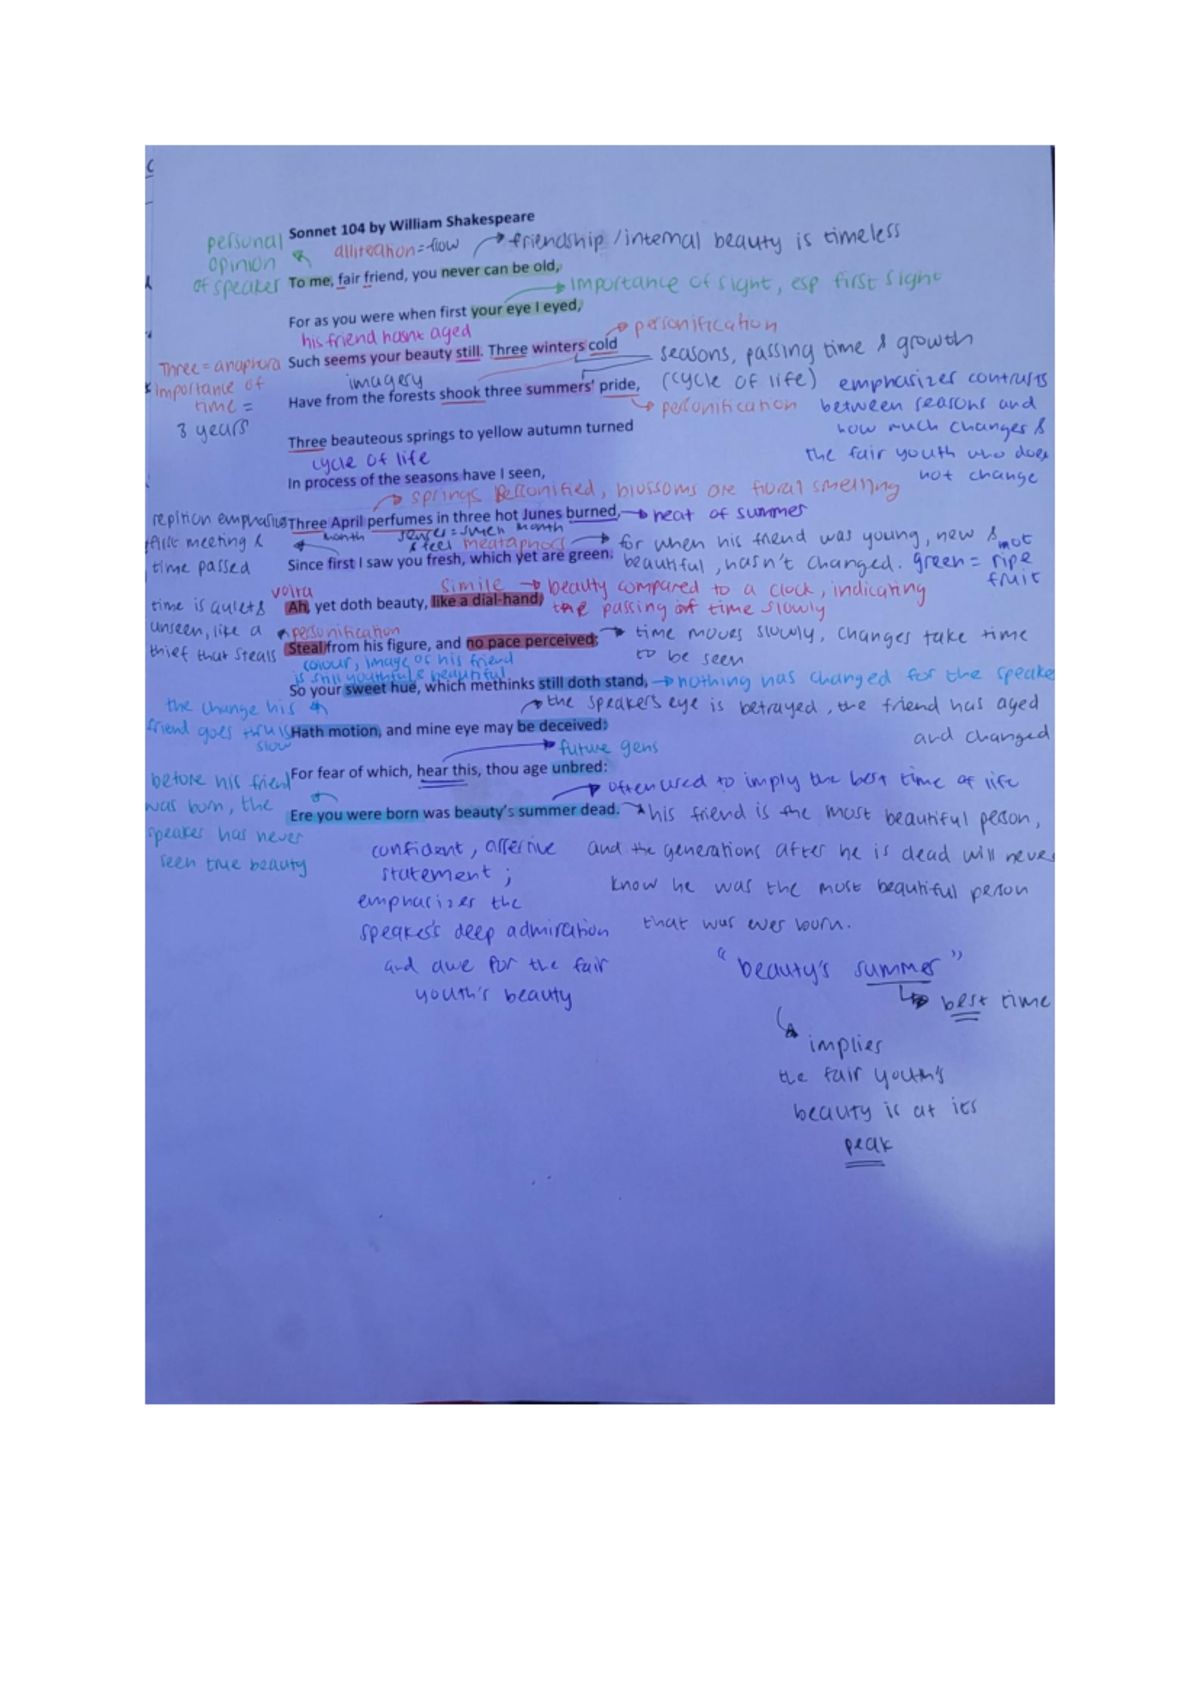 Sonnet 104 by William Shakespeare
personal opinion of speaker
alliteration = flow
friendship / internal beauty is timeless
To me, fair friend, you never can be old,
importance of sight, esp first sight
For as you were when first your eye I eyed,
his friend hasnt aged
personification
Such seems your beauty still. Three winters cold
Three = anaphora
importance of
time =
3 years
seasons, passing time & growth
(cycle of life)
imagery
Have from the forests shook three summers' pride,
personification
emphasizes contrasts
between seasons and
how much changes &
the fair youth who does
not change
Three beauteous springs to yellow autumn turned
cycle of life
In process of the seasons have I seen,
springs personified, blossoms are floral smelling
Three April perfumes in three hot Junes burned,
heat of summer
month
senses = smell
month
& feel
first meeting &
time passed
metaphor
for when his friend was young, new &
beautiful, hasn't changed. green = not ripe
fruit
Since first I saw you fresh, which yet are green.
volta
simile
beauty compared to a clock, indicating
the passing of time slowly
Ah, yet doth beauty, like a dial-hand,
time is quiet &
unseen, like a
thief that steals
personification
Steal from his figure, and no pace perceived;
time moves slowly, changes take time
to be seen
colour, image of his friend
is still youthful & beautiful
So your sweet hue, which methinks still doth stand,
nothing has changed for the speaker
the change his
friend goes thru is
slow
the speakers eye is betrayed, the friend has aged
and changed
Hath motion, and mine eye may be deceived:
future gens
For fear of which, hear this, thou age unbred:
before his friend
was born, the
speaker has never
seen true beauty
often used to imply the best time of life
Ere you were born was beauty's summer dead.
his friend is the most beautiful person,
and the generations after he is dead will never
know he was the most beautiful person
that was ever born.
confident, assertive
statement;
emphasizes the
speaker's deep admiration
and awe for the fair
youth's beauty
"beauty's summer"
best time
implies
the fair youth's
beauty is at its
peak